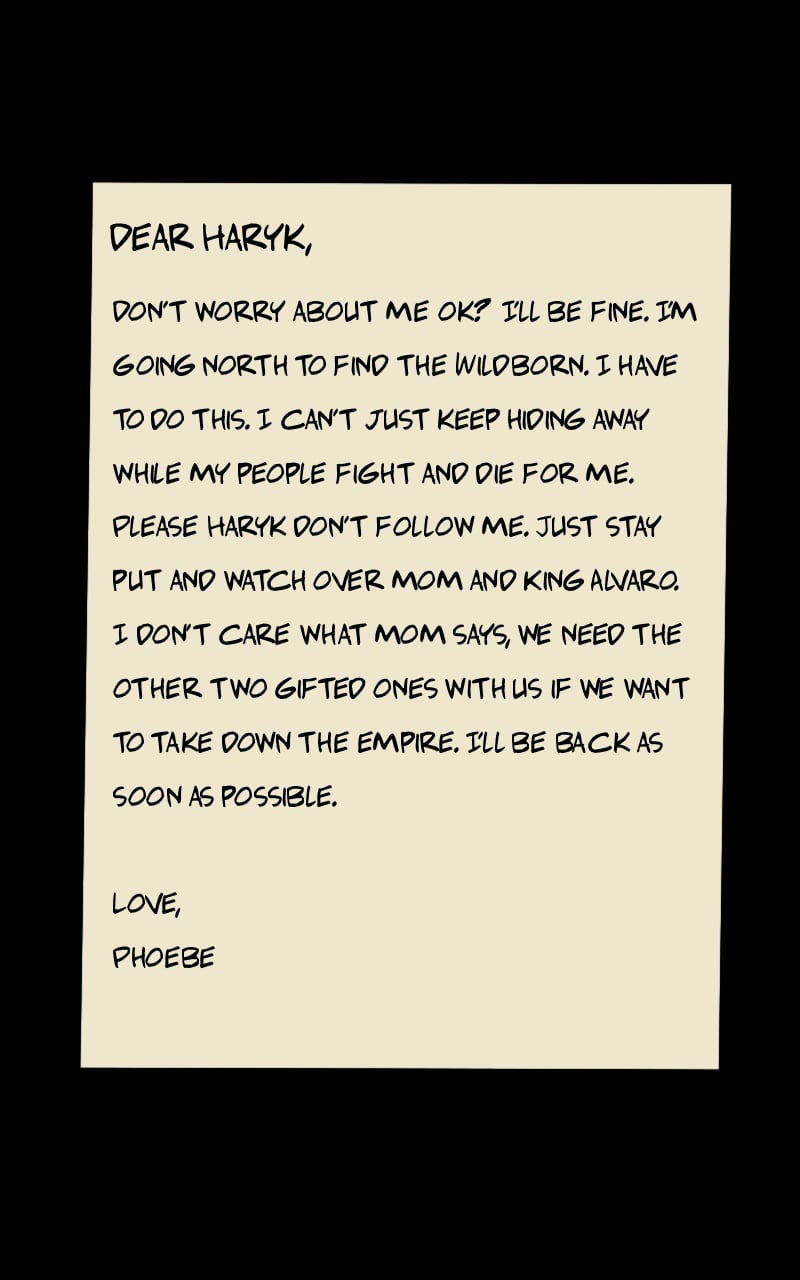 DEAR HARYK,
DON'T WORRY ABOUT ME OK? I'LL BE FINE. I'M
GOING NORTH TO FIND THE WILDBORN. I HAVE
TO DO THIS. I CAN'T JUST KEEP HIDING AWAY
WHILE MY PEOPLE FIGHT AND DIE FOR ME.
PLEASE HARYK DON'T FOLLOW ME. JUST STAY
PUT AND WATCH OVER MOM AND KING ALVARO.
I DON'T CARE WHAT MOM SAYS, WE NEED THE
OTHER TWO GIFTED ONES WITH US IF WE WANT
TO TAKE DOWN THE EMPIRE. I'LL BE BACK AS
SOON AS POSSIBLE.
LOVE,
PHOEBE